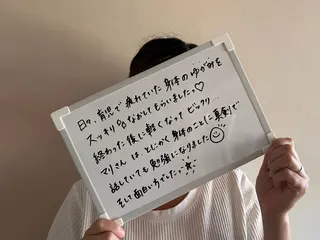 日々、育児で疲れていた身体のゆがみを
スッキリなおしてもらいましたっ♡
終わった後に軽くなってビックリ…
マリさんは、とにかく身体のことに真剣で
話していても勉強になりました☺
そして面白い方でした!